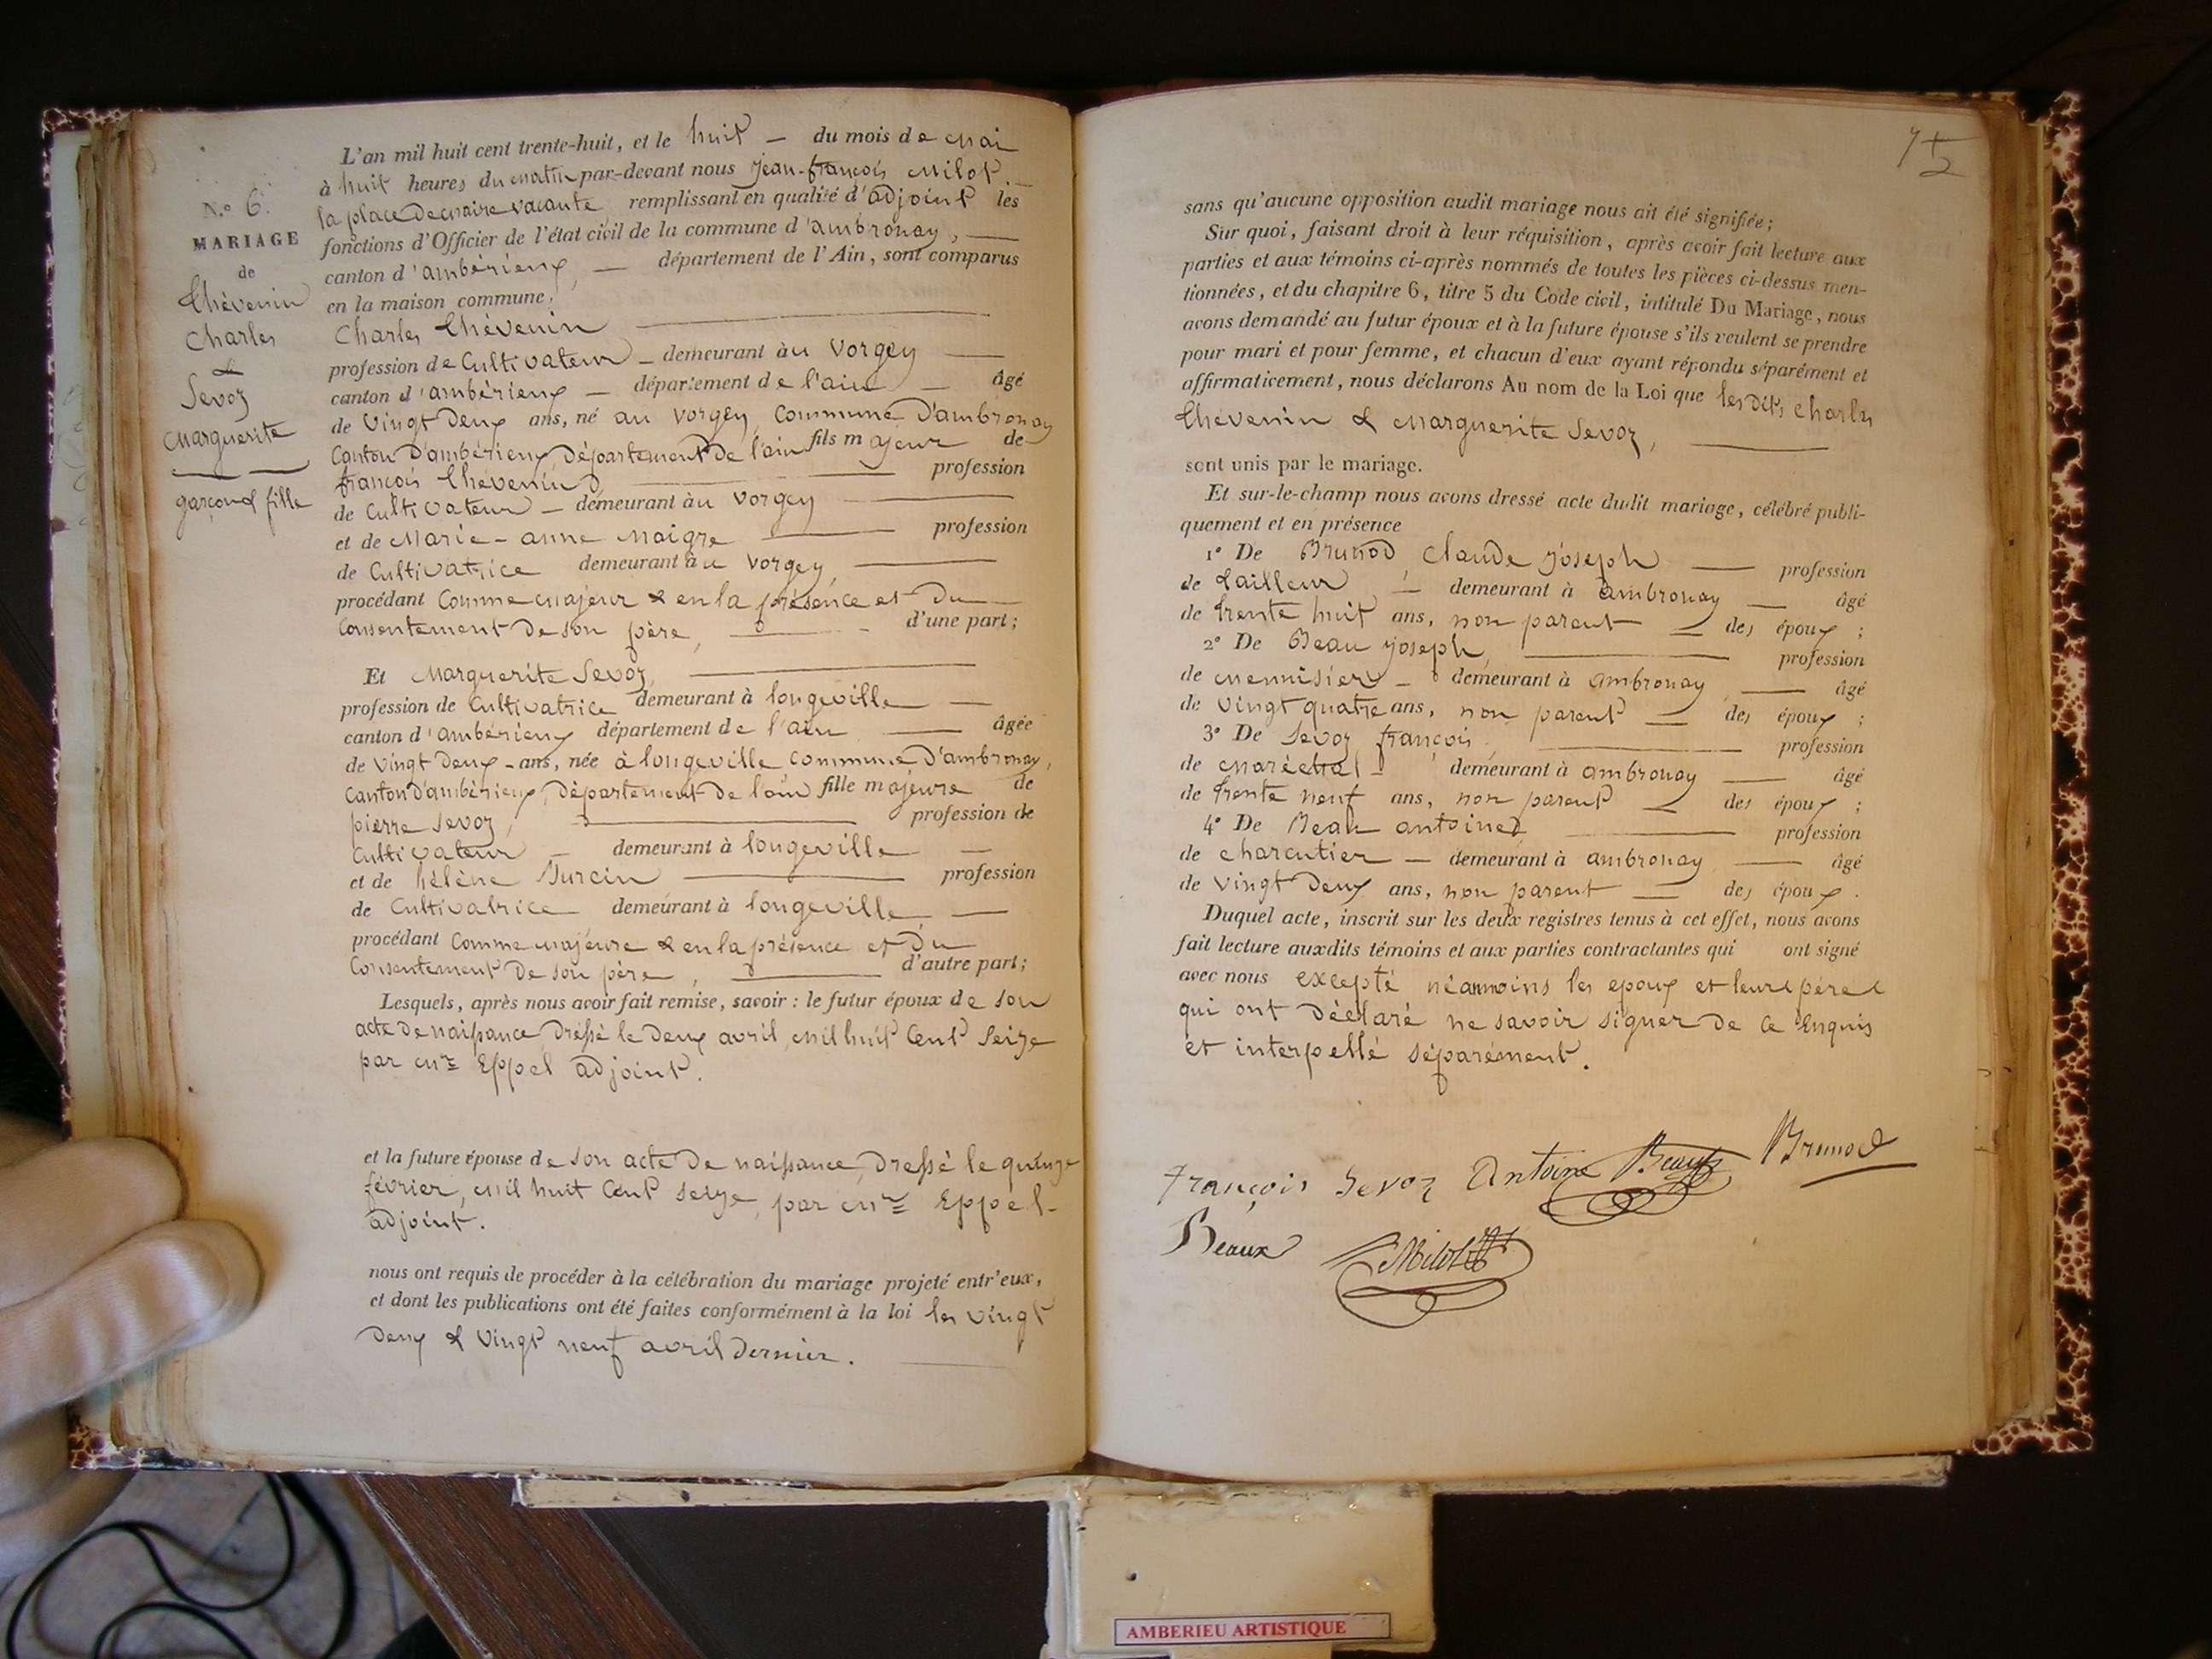 N.° 6.
MARIAGE
de
Thévenin
Charles
&
Sevoz
Marguerite
garçon & fille
L'an mil huit cent trente-huit, et le huit du mois de Mai
à huit heures du matin par-devant nous Jean-françois Milot.
la place de maire vacante, remplissant en qualité d'adjoint les
fonctions d'Officier de l'état civil de la commune d'ambronay,
canton d'ambérieux, département de l'Ain, sont comparus
en la maison commune,
Charles Thévenin
profession de Cultivateur demeurant àu Vorgey
canton d'ambérieux département de l'ain âgé
de Vingt Deux ans, né au Vorgey, Commune D'ambronay
Canton D'ambérieux Département De l'ain fils majeur de
françois Thévenin profession
de Cultivateur demeurant àu Vorgey
et de Marie-anne Maigre profession
de Cultivatrice demeurant àu Vorgey,
procédant Comme majeur & en la présence et Du
Consentement De son père, d'une part;
Et Marguerite Sevoz,
profession de Cultivatrice demeurant à longeville
canton d'ambérieux département de l'ain âgée
de Vingt Deux ans, née à longeville Commune D'ambronay,
Canton D'ambérieux, Département De l'ain fille majeure de
pierre Sevoz, profession de
Cultivateur demeurant à longeville
et de hélène Jurcin profession
de Cultivatrice demeurant à longeville
procédant Comme majeure & en la présence et Du
Consentement De son père, d'autre part;
Lesquels, après nous avoir fait remise, savoir : le futur époux de son
acte De naissance Dressé le Deux avril, mil huit Cent Seize
par Mr Eppel adjoint.
et la future épouse de son acte De naissance, Dressé le quinze
février, mil huit Cent Seize, par Mr Eppel
adjoint.
nous ont requis de procéder à la célébration du mariage projeté entr'eux,
et dont les publications ont été faites conformément à la loi les Vingt
Deux & Vingt neuf avril Dernier.
sans qu'aucune opposition audit mariage nous ait été signifiée;
Sur quoi, faisant droit à leur réquisition, après avoir fait lecture aux
parties et aux témoins ci-après nommés de toutes les pièces ci-dessus men-
tionnées, et du chapitre 6, titre 5 du Code civil, intitulé Du Mariage, nous
avons demandé au futur époux et à la future épouse s'ils veulent se prendre
pour mari et pour femme, et chacun d'eux ayant répondu séparément et
affirmativement, nous déclarons Au nom de la Loi que les Dits Charles
Thévenin & Marguerite Sevoz,
sont unis par le mariage.
Et sur-le-champ nous avons dressé acte dudit mariage, célébré publi-
quement et en présence
1° De Brunod Claude Joseph profession
de tailleur demeurant à ambronay âgé
de trente huit ans, non parent des époux;
2° De Beau joseph, profession
de menuisier demeurant à ambronay, âgé
de Vingt quatre ans, non parent des époux;
3° De Sevoz françois, profession
de maréchal demeurant à ambronay âgé
de trente neuf ans, non parent des époux;
4° De Beau antoine profession
de charcutier demeurant à ambronay âgé
de Vingt Deux ans, non parent des époux.
Duquel acte, inscrit sur les deux registres tenus à cet effet, nous avons
fait lecture auxdits témoins et aux parties contractantes qui ont signé
avec nous excepté néanmoins les epoux et leurs pères
qui ont Déclaré ne savoir signer De Ce Enquis
et interpellé séparément.
françois Sevoz Antoine Beaux Brunod
Beaux Milot
AMBERIEU ARTISTIQUE